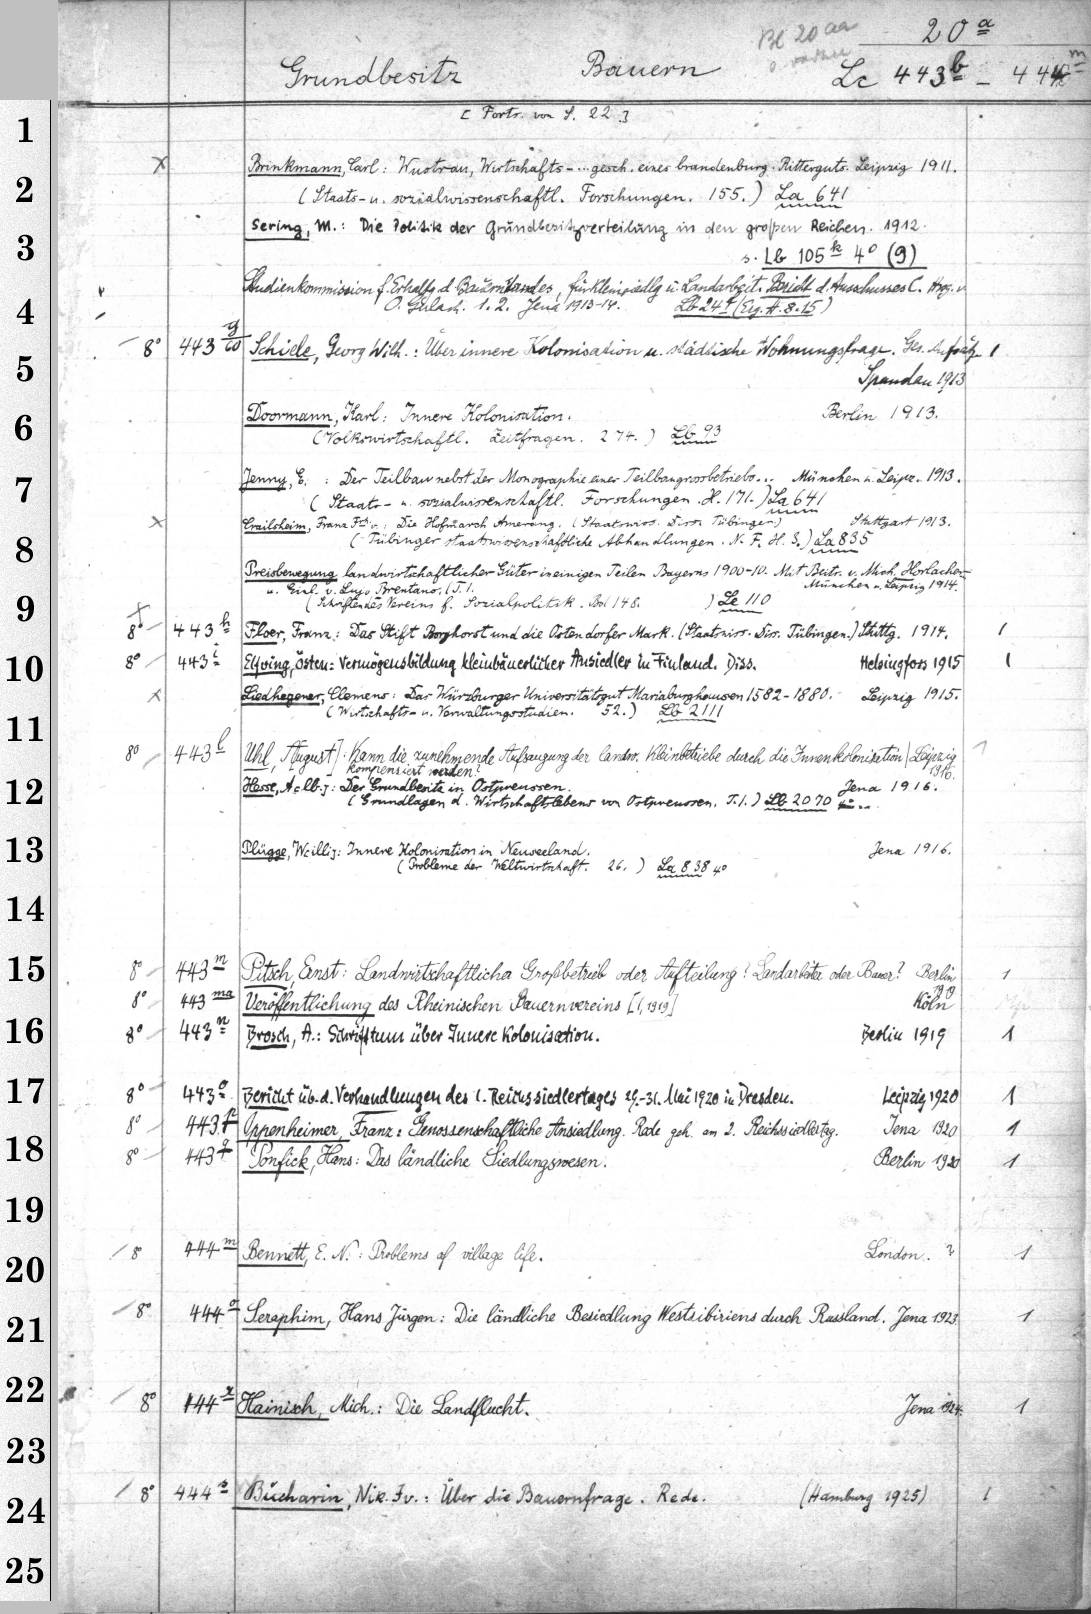 Bl 20aa
20 a
Grundbesitz Bauern Lc 443 b – 444 m
[ Forts. von S. 22 ]
1
x Brinkmann, Carl: Wustrau, Wirtschafts- ... gesch. eines brandenburg. Ritterguts. Leipzig 1911.
2 (Staats- u. sozialwissenschaftl. Forschungen. 155.) La 641
Sering, M.: Die Politik der Grundbesitzverteilung in den großen Reichen. 1912.
3 s. Lb 105 k 4° (9)
Studienkommission f. Erhaltg d. Bauernstandes, für Kleinsiedlg u. Landarbeit. Bericht d. Ausschusses C. Hrsg. v.
4 O. Gerlach. 1. 2. Jena 1913-14. Lb 24 (Erg. H. 8. 15)
8° 443 Schiele, Georg Wilh.: Über innere Kolonisation u. städtische Wohnungsfrage. Ges. Aufsätze 1
5 Spandau 1913
Doormann, Karl: Innere Kolonisation. Berlin 1913.
6 (Volkswirtschaftl. Zeitfragen. 274.) Lb 93
Jenny, E. : Der Teilbau nebst der Monographie eines Teilbaugrossbetriebs... München u. Leipz. 1913.
7 (Staats- u. sozialwissenschaftl. Forschungen. H. 171.) La 641
x Crailsheim, Franz Frh v.: Die Hofmarch Amerang. (Staatswiss. Diss. Tübingen) Stuttgart 1913.
8 (Tübinger staatswissenschaftliche Abhandlungen. N. F. H. 3.) La 835
Preisbewegung landwirtschaftlicher Güter in einigen Teilen Bayerns 1900-10. Mit Beitr. v. Mich. Horlacher
u. Einl. v. Lujo Brentano. (T. 1. München u. Leipzig 1914.
9 (Schriften des Vereins f. Sozialpolitik. Bd 148. ) Le 110
x 8° 443 h Floer, Franz: Das Stift Borghorst und die Ostendorfer Mark. (Staatswiss. Diss. Tübingen.) Stuttg. 1914. 1
10 8° 443 i Elfving, Östen: Vermögensbildung kleinbäuerlicher Ansiedler in Finland. Diss. Helsingfors 1915 1
x Liedhegener, Clemens: Das Würzburger Universitätsgut Mariaburghausen 1582-1880. Leipzig 1915.
(Wirtschafts- u. Verwaltungsstudien. 52.) Lb 2111
11
8° 443 l Uhl, August]: Kann die zunehmende Aufsaugung der landw. Kleinbetriebe durch die Innenkolonisation Leipzig 1
kompensiert werden? 1916.
12 Hesse, A[lb.]: Der Grundbesitz in Ostpreussen. Jena 1916.
(Grundlagen d. Wirtschaftslebens von Ostpreussen. T. 1.) Lb 2070 4°
13 Plügge, W[illi]: Innere Kolonisation in Neuseeland. Jena 1916.
(Probleme der Weltwirtschaft. 26. ) La 838 4°
14
15 8° 443 m Pitsch, Ernst: Landwirtschaftlicher Großbetrieb oder Aufteilung? Landarbeiter oder Bauer? Berlin 1
1919
8° 443 ma Veröffentlichung des Rheinischen Bauernvereins [1, 1919] Köln
16 8° 443 n Brosch, A.: Schrifttum über Innere Kolonisation. Berlin 1919 1
17 8° 443 o Bericht üb. d. Verhandlungen des 1. Reichssiedlertages 29.-31. Mai 1920 in Dresden. Leipzig 1920 1
8° 443 p Oppenheimer, Franz: Genossenschaftliche Ansiedlung. Rede geh. am 2. Reichssiedlertag. Jena 1920 1
18 8° 443 q Ponfick, Hans: Das ländliche Siedlungswesen. Berlin 1920 1
19
8° 444 m Bennett, E. N.: Problems of village life. London. ? 1
20
21 8° 444 o Seraphim, Hans Jürgen: Die ländliche Besiedlung Westsibiriens durch Russland. Jena 1923. 1
22 8° 444 r Hainisch, Mich.: Die Landflucht. Jena 1924. 1
23
24 8° 444 s Bucharin, Nik. Iv.: Über die Bauernfrage. Rede. (Hamburg 1925) 1
25